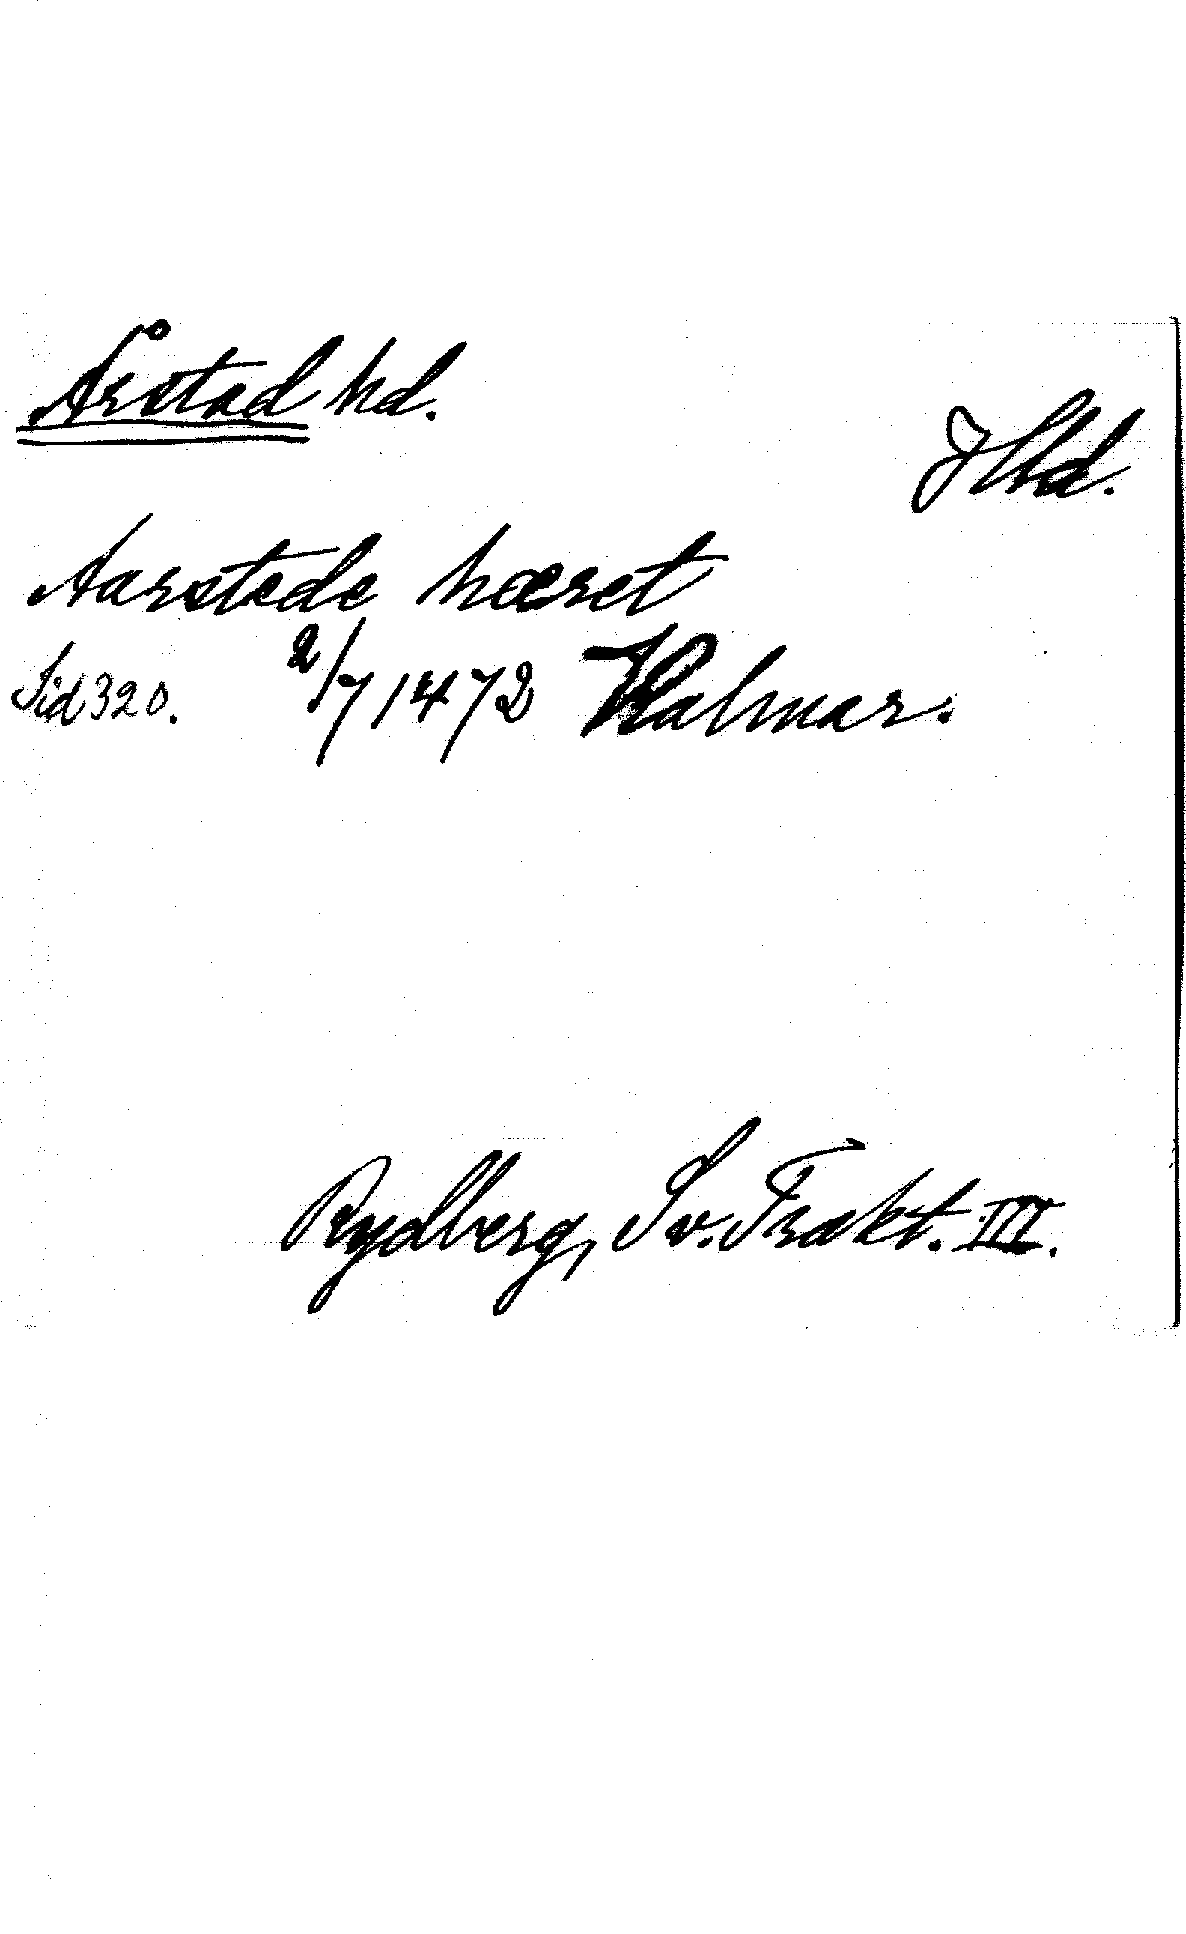 Årstad hd.
Hld.
Aarstede hæret
Sid 320. 2/7 1472 Kalmar.
Rydberg, Sv. Trakt. III.